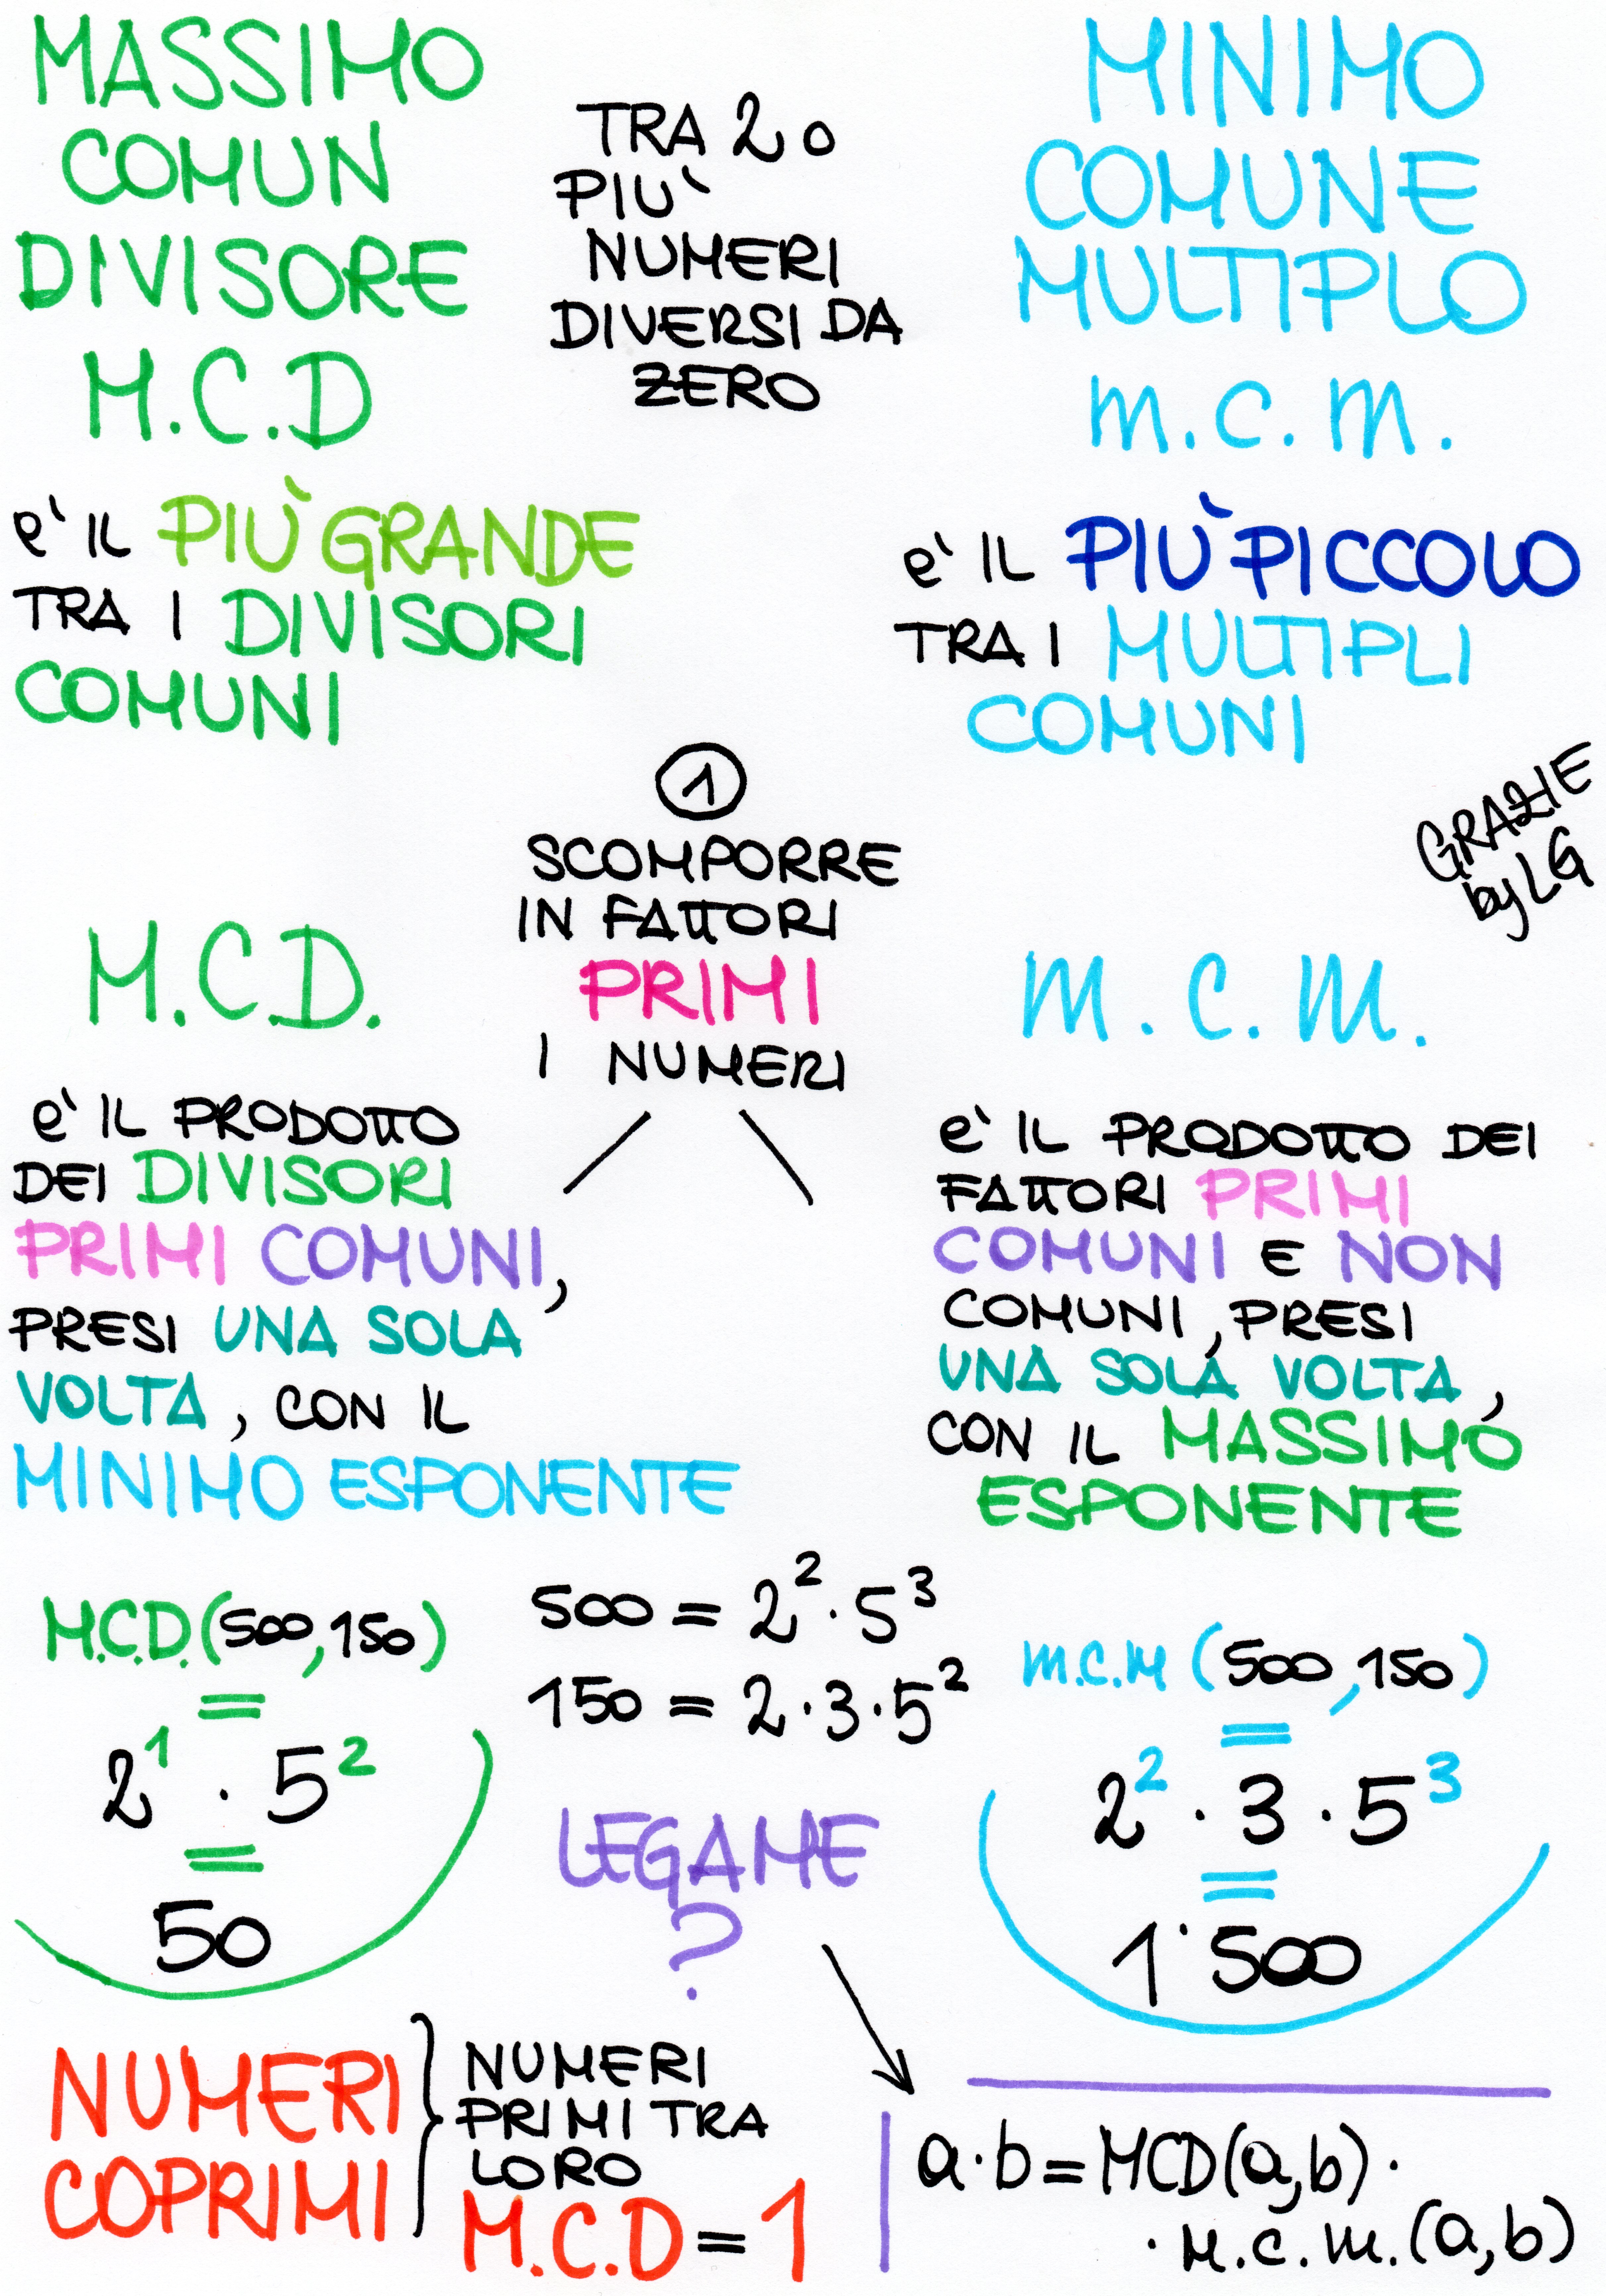 MASSIMO
COMUN
DIVISORE
M.C.D
TRA 2 O
PIU'
NUMERI
DIVERSI DA
ZERO
MINIMO
COMUNE
MULTIPLO
m.c.m.
e' IL PIÙ GRANDE
TRA I DIVISORI
COMUNI
e' IL PIÙ PICCOLO
TRA I MULTIPLI
COMUNI
GRAZIE
by LG
1
SCOMPORRE
IN FATTORI
PRIMI
I NUMERI
M.C.D.
e' IL PRODOTTO
DEI DIVISORI
PRIMI COMUNI,
PRESI UNA SOLA
VOLTA, CON IL
MINIMO ESPONENTE
m.c.m.
e' IL PRODOTTO DEI
FATTORI PRIMI
COMUNI E NON
COMUNI, PRESI
UNA SOLA VOLTA,
CON IL MASSIMO
ESPONENTE
M.C.D.(500,150)
=
2¹ · 5²
=
50
500 = 2² · 5³
150 = 2 · 3 · 5²
m.c.m (500,150)
=
2² · 3 · 5³
=
1˙500
LEGAME
?
NUMERI
COPRIMI
NUMERI
PRIMI TRA
LORO
M.C.D = 1
a·b = MCD(a,b) ·
· m.c.m.(a,b)